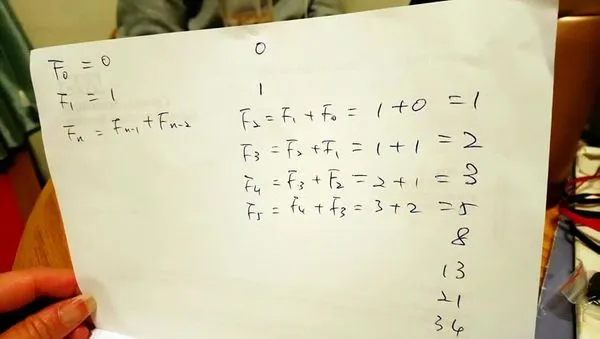 F₀ = 0
F₁ = 1
Fₙ = Fₙ₋₁ + Fₙ₋₂
0
1
F₂ = F₁ + F₀ = 1 + 0 = 1
F₃ = F₂ + F₁ = 1 + 1 = 2
F₄ = F₃ + F₂ = 2 + 1 = 3
F₅ = F₄ + F₃ = 3 + 2 = 5
8
13
21
34